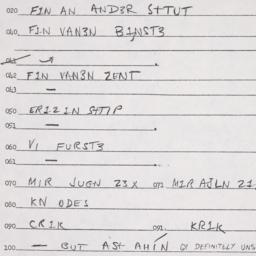 020 FIN AN AND3R STTUT
040. FIN VAN3N BINST3
041
042 FIN VAN3N ZENT
043 —
050 ERIZIN STTIP
051 —
060 VI FURST3
061 —
070 MIR JUGN 23X 071 MIRAJLN 21
080 KN ODES
090 CRIK 091. KRIK
100 — BUT AST AHIN OI DEFINITLLY UNS